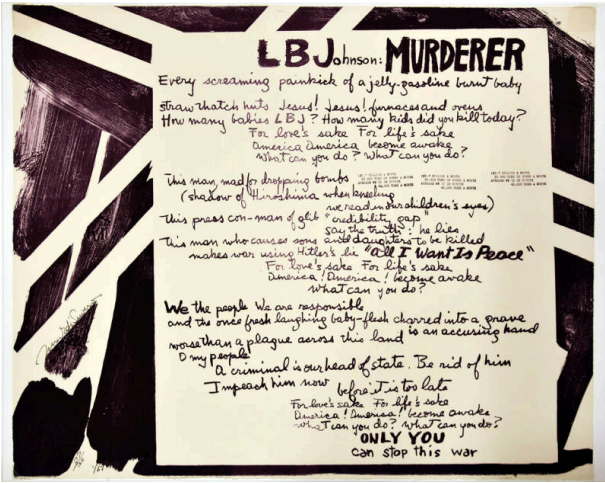 LBJohnson: MURDERER
Every screaming painkick of a jelly-gasoline burnt baby
straw thatch huts Jesus! Jesus! furnaces and ovens
How many babies LBJ? How many kids did you kill today?
For love's sake For life's sake
America America become awake
What can you do? What can you do?
This man, mad for dropping bombs
(shadow of Hiroshima when kneeling
we read in our children's eyes)
This press con-man of glib "credibility gap"
say the truth: he lies
This man who causes sons and daughters to be killed
makes war using Hitler's lie "All I Want Is Peace"
For love's sake For life's sake
America! America! become awake
What can you do?
We the people We are responsible
and the once fresh laughing baby-flesh charred into a grave
worse than a plague across this land is an accusing hand
O my people
A criminal is our head of state. Be rid of him
Impeach him now before it is too late
For love's sake For life's sake
America! America! become awake
What can you do? What can you do?
ONLY YOU
can stop this war